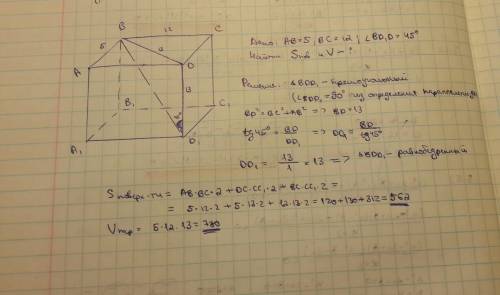 B 12 C
5 a
A D
13
B₁ C₁
A₁ D₁
Дано: AB=5; BC=12; ∠BD₁D=45°
Найти: Sпов и V - ?
Решение: ΔBDD₁ - прямоугольный
(∠BDD₁=90° из определения параллелепипеда)
BD²=BC²+AB² => BD=13
tg45°=BD/DD₁ => DD₁=BD/tg45°
DD₁=13/1=13 => ΔBDD₁ - равнобедренный
Sповерх-ти = AB·BC·2+DC·CC₁·2+BC·CC₁·2=
= 5·12·2+5·13·2+12·13·2=120+130+312=562
Vпар = 5·12·13=780